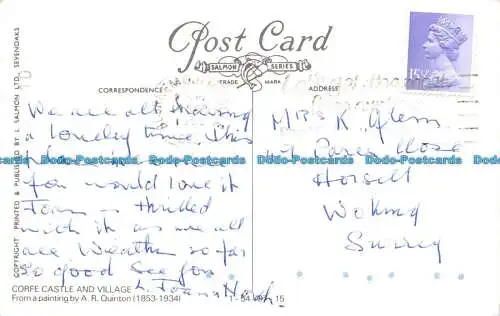 Post Card
SALMON SERIES
TRADE MARK
CORRESPONDENCE
ADDRESS
15½P
COPYRIGHT PRINTED & PUBLISHED BY J. SALMON LTD., SEVENOAKS
We are all having
a lovely time. This
you would love it
Joan is thrilled
with it as we all
are Weather so far
so good See you
L. Joan
Mrs K
Close
Horsell
Woking
Surrey
Dodo-Postcards Dodo-Postcards Dodo-Postcards Dodo-Postcards
CORFE CASTLE AND VILLAGE
From a painting by A. R. Quinton (1853-1934)
15